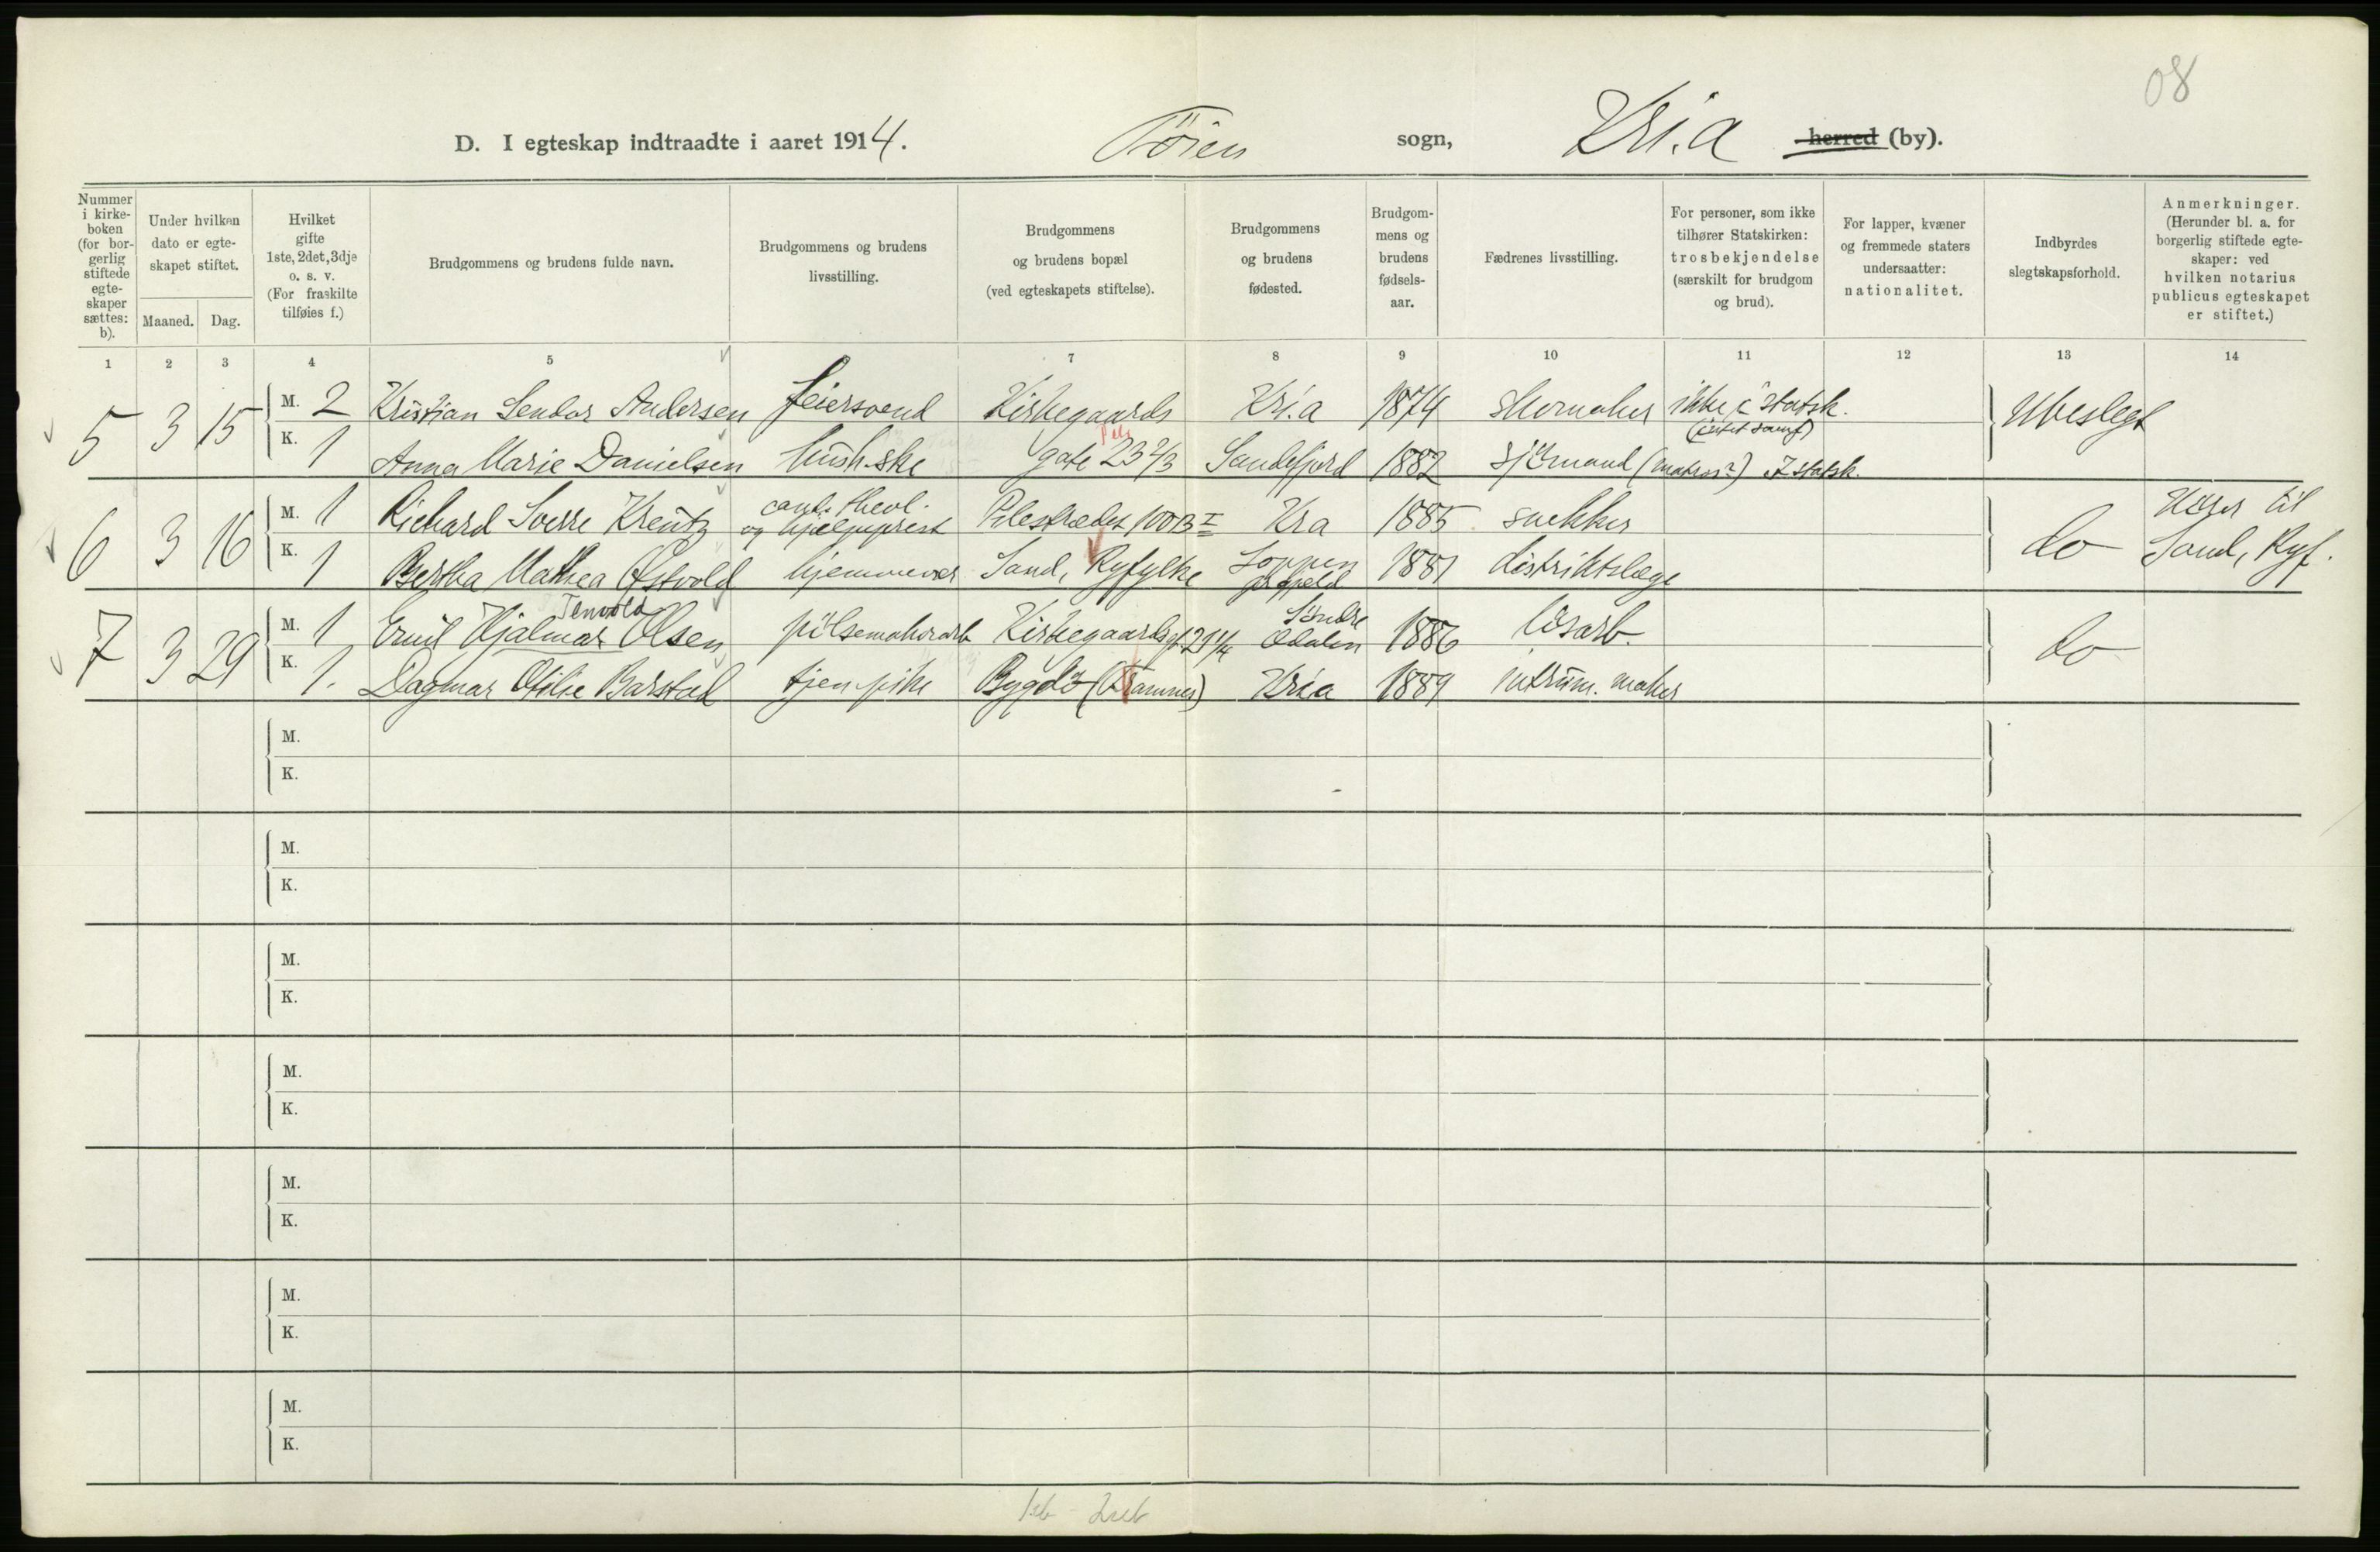 08
D. I egteskap indtraadte i aaret 1914. Töien sogn, Kri.a herred (by).
Nummer i kirke-boken (for bor-gerlig stiftede egte-skaper sættes: b).
Under hvilken dato er egte-skapet stiftet.
Maaned. Dag.
Hvilket gifte 1ste, 2det, 3dje o. s. v. (For fraskilte tilføies f.)
Brudgommens og brudens fulde navn.
Brudgommens og brudens livsstilling.
Brudgommens og brudens bopæl (ved egteskapets stiftelse).
Brudgommens og brudens fødested.
Brudgom-mens og brudens fødsels-aar.
Fædrenes livsstilling.
For personer, som ikke tilhører Statskirken: trosbekjendelse (særskilt for brudgom og brud).
For lapper, kvæner og fremmede staters undersaatter: nationalitet.
Indbyrdes slegtskapsforhold.
Anmerkninger. (Herunder bl. a. for borgerlig stiftede egte-skaper: ved hvilken notarius publicus egteskapet er stiftet.)
1 2 3 4 5 6 7 8 9 10 11 12 13 14
5 3 15 M. 2 Kristian Sendor Andersen feiersvend Kirkegaards Kri.a 1874 skomaker ikke i statsk. (intet samf) Ubeslegt
K. 1 Anna Marie Danielsen hush.ske gate 23 2/3 Sandefjord 1882 sjömand (matros?) I statsk.
6 3 16 M. 1 Richard Sverre Kreutz cand. theol. og hjælpeprest Pilestrædet 100 B I Kra 1885 snekker do Hører til
K. 1 Bertha Mathea Østvold hjemmevær. Sand, Ryfylke Loppen prgjeld 1881 distriktslæge Sand, Ryf.
Tenvold
7 3 29 M. 1 Emil Hjalmar Olsen pölsemakerarb Kirkegaardsgt 21 1/4 Söndre Odalen 1886 lösarb. do
K. 1. Dagmar Otilie Barstad tjen.pike Bygdö (Framnes) Kria 1889 intrum. maker
M.
K.
M.
K.
M.
K.
M.
K.
M.
K.
M.
K.
M.
K.